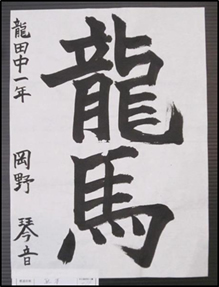 龍馬
龍田中一年
岡野琴音